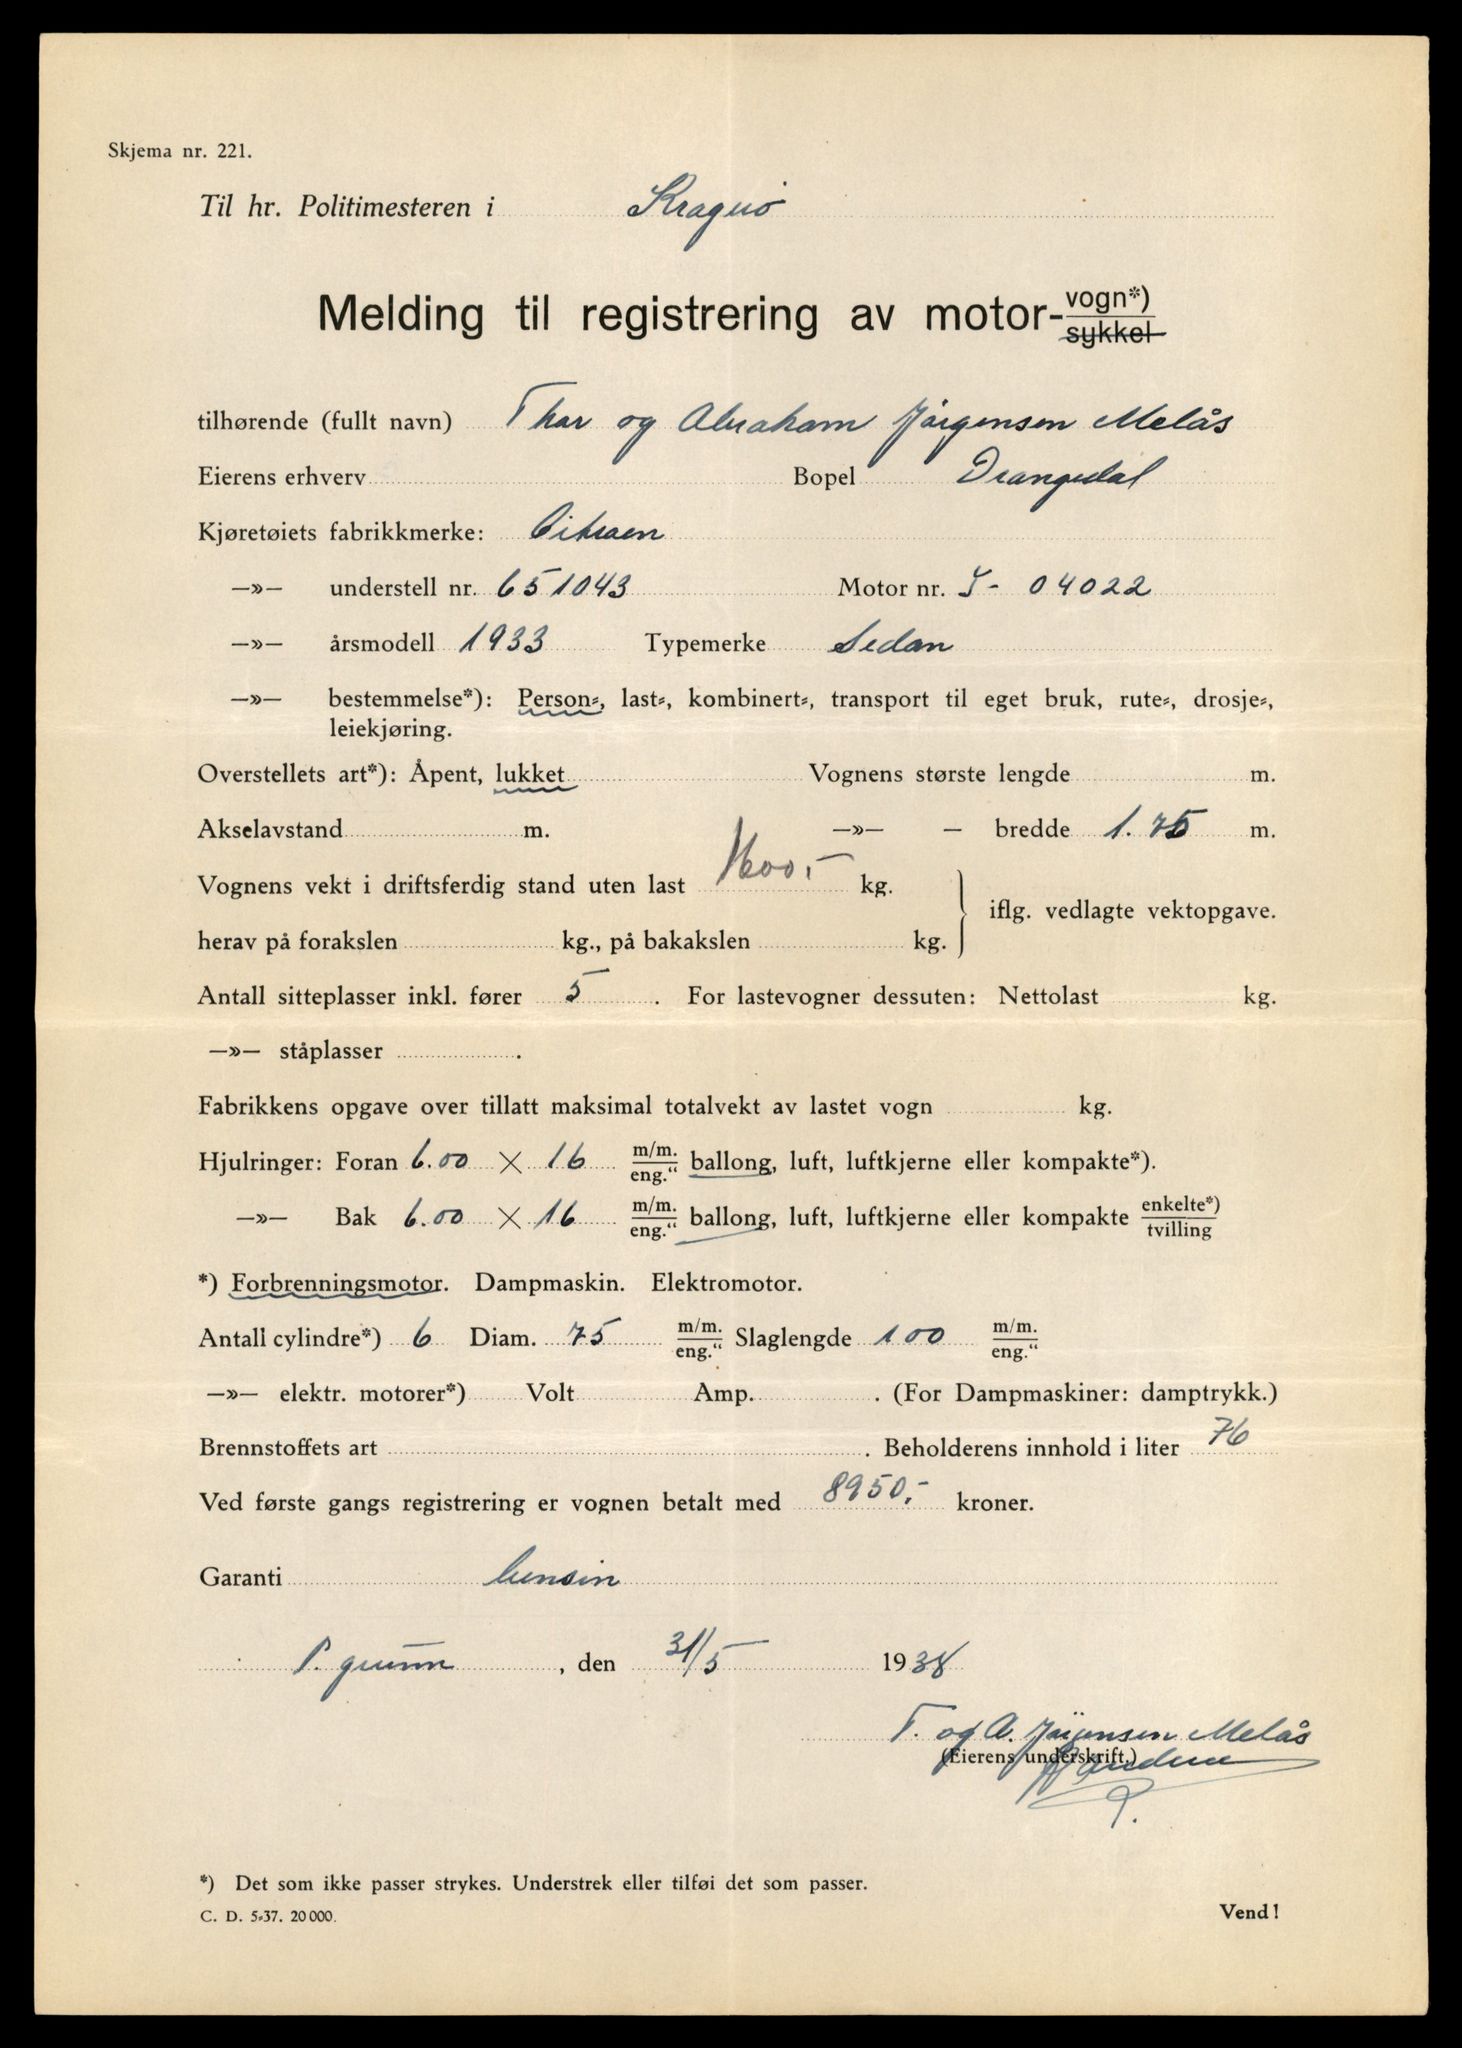 Skjema nr. 221.
Til hr. Politimesteren i Kragerø
Melding til registrering av motor-vogn*)
sykkel
tilhørende (fullt navn) Thor og Abraham Jørgensen Melås
Eierens erhverv Bopel Drangedal
Kjøretøiets fabrikkmerke: Citroen
—»— understell nr. 651043 Motor nr. Y- 04022
—»— årsmodell 1933 Typemerke Sedan
—»— bestemmelse*): Person-, last-, kombinert-, transport til eget bruk, rute-, drosje-,
leiekjøring.
Overstellets art*): Åpent, lukket Vognens største lengde m.
Akselavstand m. —»— — bredde 1.75 m.
Vognens vekt i driftsferdig stand uten last 1600,- kg.
iflg. vedlagte vektopgave.
herav på forakslen kg., på bakakslen kg.
Antall sitteplasser inkl. fører 5 . For lastevogner dessuten: Nettolast kg.
—»— ståplasser .
Fabrikkens opgave over tillatt maksimal totalvekt av lastet vogn kg.
Hjulringer: Foran 6.00 × 16 m/m. eng.“ ballong, luft, luftkjerne eller kompakte*).
—»— Bak 6.00 × 16 m/m. eng.“ ballong, luft, luftkjerne eller kompakte enkelte*) tvilling
*) Forbrenningsmotor. Dampmaskin. Elektromotor.
Antall cylindre*) 6 Diam. 75 m/m. eng.“ Slaglengde 100 m/m. eng.“
—»— elektr. motorer*) Volt Amp. . (For Dampmaskiner: damptrykk.)
Brennstoffets art . Beholderens innhold i liter 76
Ved første gangs registrering er vognen betalt med 8950,- kroner.
Garanti bensin
P.grunn , den 31/5 1938
T. og A. Jørgensen Melås
(Eierens underskrift.)
*) Det som ikke passer strykes. Understrek eller tilføi det som passer.
C. D. 5-37. 20 000.
Vend!